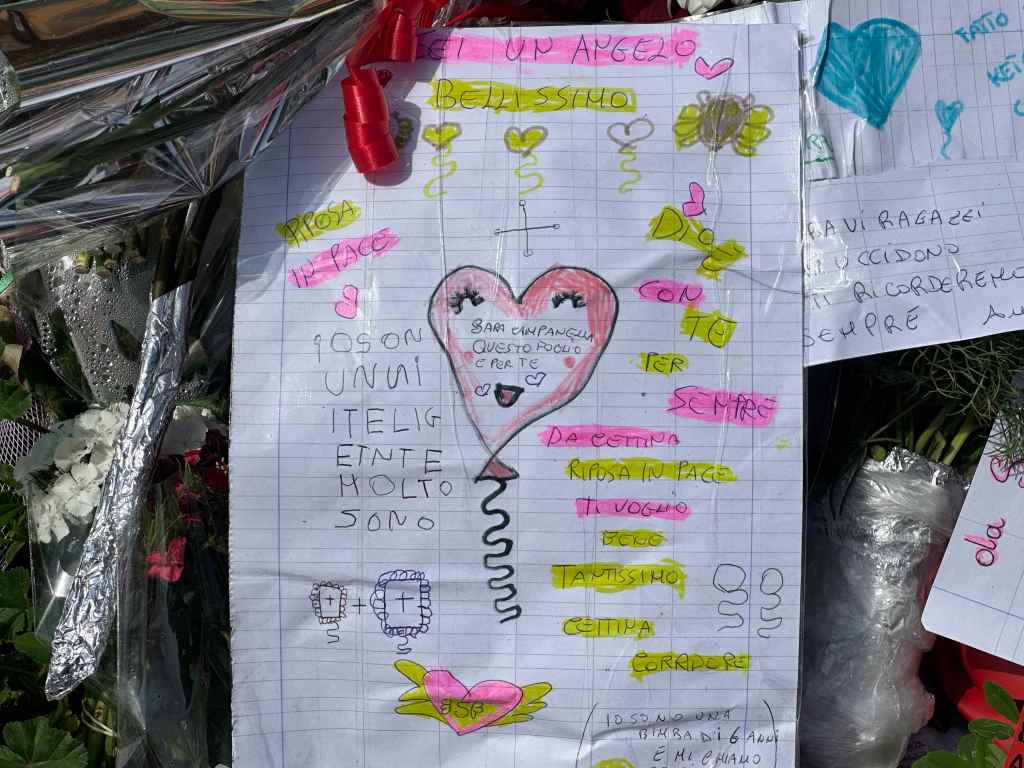 SEI UN ANGELO
BELLISSIMO
RIPOSA
IN PACE
DIO
CON
TE
PER
SEMPRE
SARA CAMPANELLA
QUESTO FOGLIO
E PER TE
IOSON
UNNI
ITELIG
ETNTE
MOLTO
SONO
DA CETTINA
RIPOSA IN PACE
TI VOGLIO
BENE
TANTISSIMO
CETTINA
CORRADORE
IO SONO UNA
BIMBA DI 6 ANNI
E MI CHIAMO
FATTO
RAGAZZI
UCCIDONO
TI RICORDEREMO
SEMPRE
ola